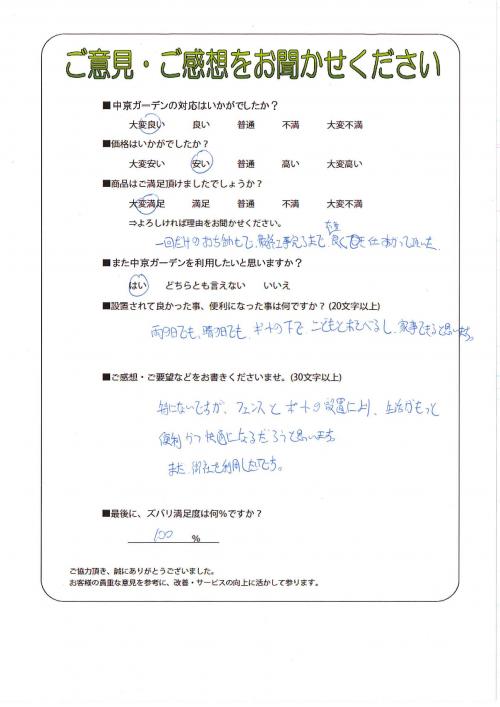 ご意見・ご感想をお聞かせください
■中京ガーデンの対応はいかがでしたか？
大変良い 良い 普通 不満 大変不満
■価格はいかがでしたか？
大変安い 安い 普通 高い 大変高い
■商品はご満足頂けましたでしょうか？
大変満足 満足 普通 不満 大変不満
⇒よろしければ理由をお聞かせください。
一回だけのお打合せで、工事完了まで、良く
■また中京ガーデンを利用したいと思いますか？
はい どちらとも言えない いいえ
■設置されて良かった事、便利になった事は何ですか？(20文字以上)
雨の日でも、晴の日でも、の下でこどもとあそべるし、家事できると思います。
■ご感想・ご要望などをお書きくださいませ。(30文字以上)
特にないですが、フェンスとの設置により、生活がもっと
便利かつ快適になるだろうと思います。
また、御社を利用したいです。
■最後に、ズバリ満足度は何％ですか？
100 ％
ご協力頂き、誠にありがとうございました。
お客様の貴重な意見を参考に、改善・サービスの向上に活かして参ります。